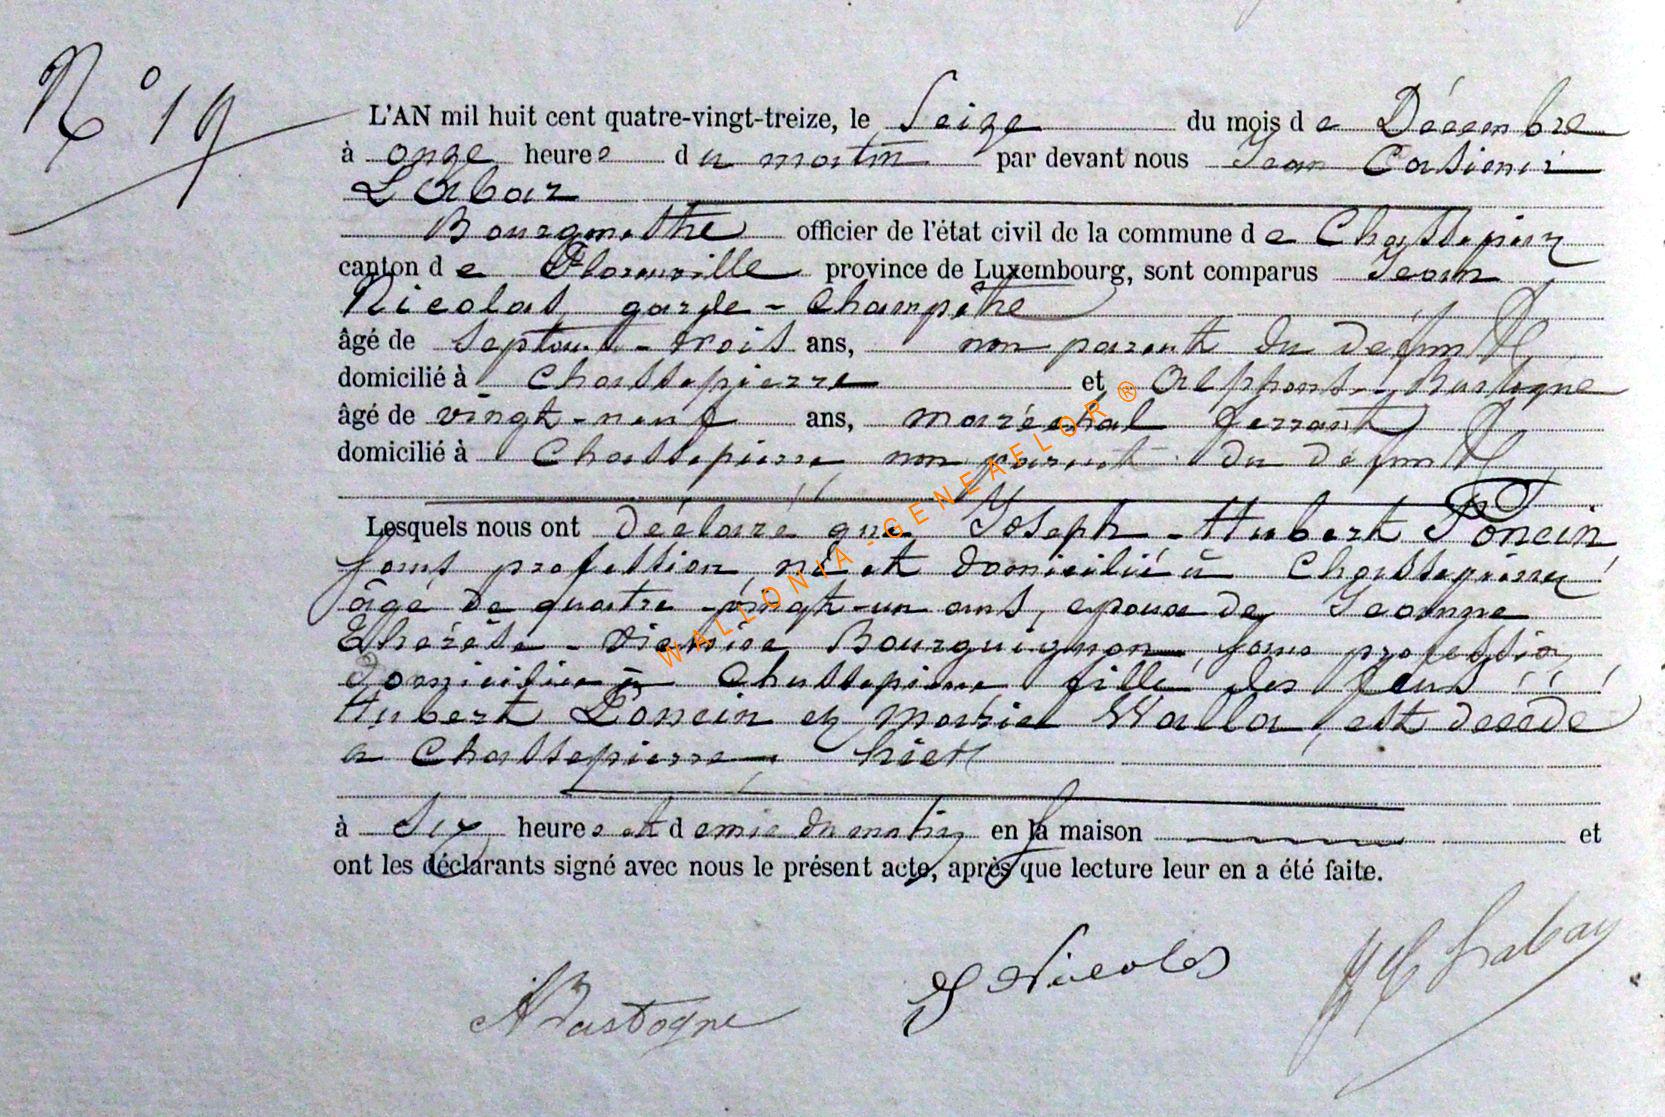 N° 19
L'AN mil huit cent quatre-vingt-treize, le Seize du mois de Décembre
à onze heures du matin par devant nous Jean Casimir
Labar
Bourgmestre officier de l'état civil de la commune de Chassepierre
canton de Florenville province de Luxembourg, sont comparus Jean
Nicolas garde-champêtre
âgé de septante-trois ans, non parent du défunt
domicilié à Chassepierre et Alphonse Bastogne
âgé de vingt-neuf ans, maréchal ferrant
domicilié à Chassepierre non parent du défunt
Lesquels nous ont déclaré que Joseph-Hubert Poncin
sans profession, né et domicilié à Chassepierre
âgé de quatre-vingt-un ans, epoux de Jeanne
Thérèse- Bourguignon sans profession
domiciliée à Chassepierre fille des feus
Hubert Poncin et Marie Walla, est décédé
a Chassepierre hier
à Six heures et demie du matin en sa maison et
ont les déclarants signé avec nous le présent acte, après que lecture leur en a été faite.
ABastogne J Nicolas JC Labar
WALLONIA-GENEAELOR®